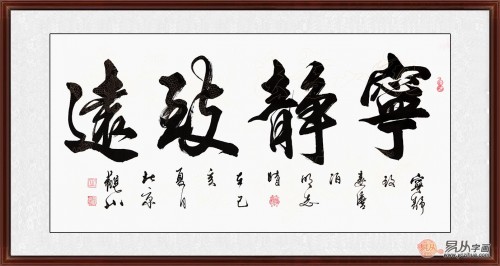 寧靜致遠
寧靜
致
遠澹
泊
明志
時
在己
亥
夏月
北京
易从字画
www.yczihua.com